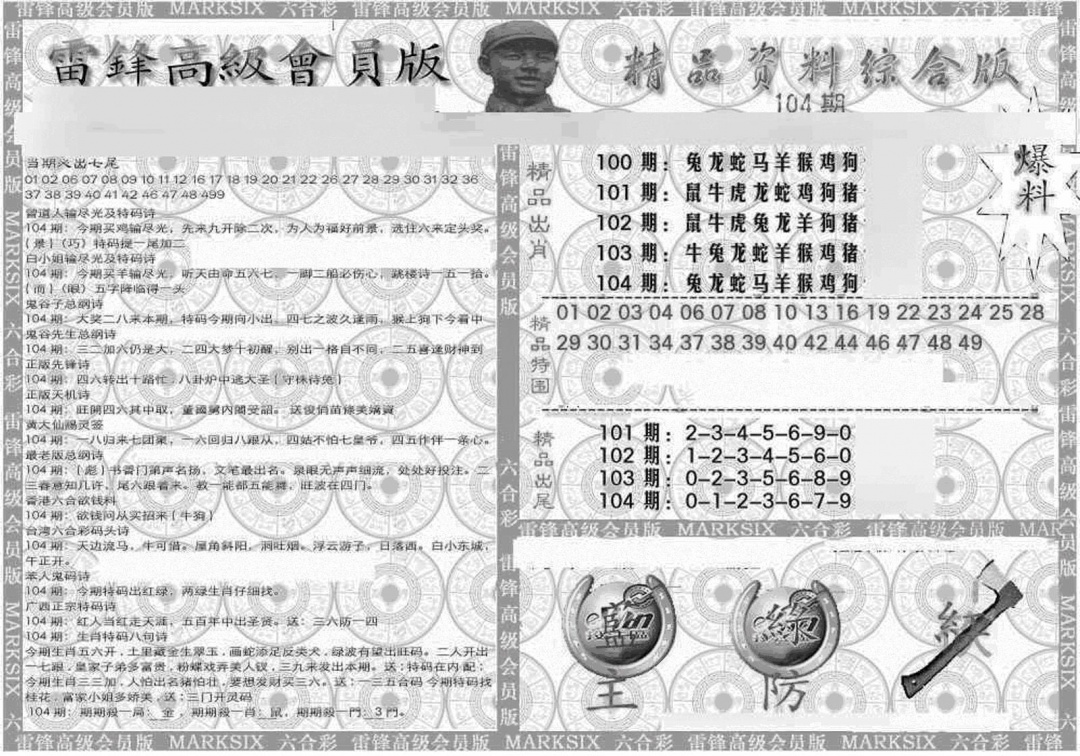 雷锋高级会员版 MARKSIX 六合彩 雷锋高级会员版 MARKSIX 六合彩 雷锋高级会员版 MARKSIX 六合彩
雷鋒高級會員版
精品資料綜合版
104期
当期突出七尾
01 02 06 07 08 09 10 11 12 16 17 18 19 20 21 22 26 27 28 29 30 31 32 36
37 38 39 40 41 42 46 47 48 499
曾道人输尽光及特码诗
104期：今期买鸡输尽光，先来九开除二次，为人为福好前景，选住六来定头奖。
{景}（巧）特码提一尾加二
白小姐输尽光及特码诗
104期：今期买羊输尽光，听天由命五六七，一脚二船必伤心，跳楼诗一五一拾。
{而}（眼）五字降临得一头
鬼谷子总纲诗
104期：大奖二八来本期，特码今期向小出，四七之波久逢雨，猴上狗下今看中
鬼谷先生总纲诗
104期：三二加六仍是大，二四大梦十初醒，别出一格自不同，二五喜逢财神到
正版先锋诗
104期：四六转出十踏忙；八卦炉中逃大圣{守株待兔}
正版天机诗
104期：旺開四六其中取，董國舅内閣受詔。送俊俏苗條美嬌資
黄大仙赐灵签
104期：一八归来七团聚，一六回归八跟从，四姑不怕七皇爷，四五作伴一条心。
最老版总纲诗
104期：{彪}书香门第声名扬，文笔最出名。泉眼无声声细流，处处好投注。二
三春意知几许，尾六跟着来。教一能都五能舞，旺波在四门。
香港六合欲钱料
104期：欲钱问从买招来{牛狗}
台湾六合彩码头诗
104期：天边流马，牛可借。屋角斜阳，洞吐烟。浮云游子，日落西。白小东城，
午正开。
苯人鬼码诗
104期：今期特码出红绿，两绿生肖仔细找。
广西正宗特码诗
104期：红人当红走天涯，五百年中出圣贤。送：三六防一四
104期：生肖特码八句诗
今期生肖五六开，土里藏金生翠玉，画蛇添足反类犬，绿波有望出旺码。二人开出
一七跟，皇家子弟多富贵，粉蝶戏弄美人钗，三九来发出本期。送：特码在内配：
今期生肖三三加，人怕出名猪怕壮，要想发财买三六。送：一三五合码今期特码找
桂花，富家小姐多娇美，送：三门开灵码
104期：期期殺一局：金，期期殺一肖：鼠，期期殺一門：3門。
精品出肖
100期：兔龙蛇马羊猴鸡狗
101期：鼠牛虎龙蛇鸡狗猪
102期：鼠牛虎兔龙羊狗猪
103期：牛兔龙蛇羊猴鸡猪
104期：兔龙蛇马羊猴鸡狗
爆料
精品特围
01 02 03 04 06 07 08 10 13 16 19 22 23 24 25 28
29 30 31 34 37 38 39 40 42 44 46 47 48 49
精品出尾
101期：2-3-4-5-6-9-0
102期：1-2-3-4-5-6-0
103期：0-2-3-5-6-8-9
104期：0-1-2-3-6-7-9
雷锋高级会员版 MARKSIX 六合彩 雷锋高级会员版 MAR
藍
主
綠
防
紅
雷锋高级会员版 MARKSIX 六合彩 雷锋高级会员版 MARKSIX 六合彩 雷锋高级会员版 MARKSIX 六合彩